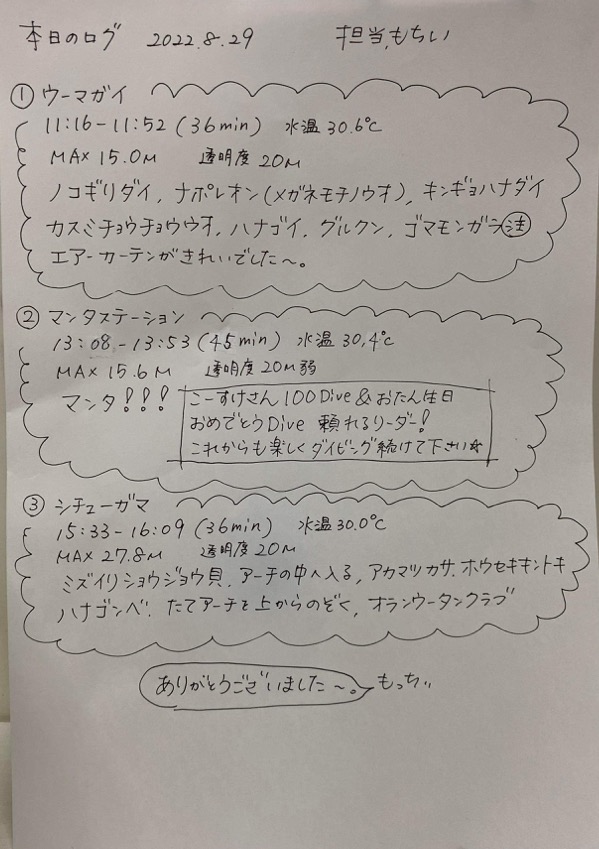 本日のログ 2022.8.29 担当.もちい
① ウーマガイ
11:16-11:52 (36min) 水温 30.6℃
MAX 15.0M 透明度 20M
ノコギリダイ, ナポレオン(メガネモチノウオ), キンギョハナダイ
カスミチョウチョウウオ, ハナゴイ, グルクン, ゴマモンガラ 注
エアーカーテンがきれいでした〜。
② マンタステーション
13:08-13:53 (45min) 水温 30,4℃
MAX 15.6M 透明度 20M弱
マンタ!!!
こーすけさん 100Dive & おたん生日
おめでとうDive 頼れるリーダー!
これからも楽しくダイビング続けて下さい☆
③ シチューガマ
15:33-16:09 (36min) 水温 30.0℃
MAX 27.8M 透明度 20M
ミズイリショウジョウ貝, アーチの中へ入る, アカマツカサ, ホウセキキントキ
ハナゴンベ, たてアーチを上からのぞく, オランウータンクラブ
ありがとうございました〜。 もっちぃ